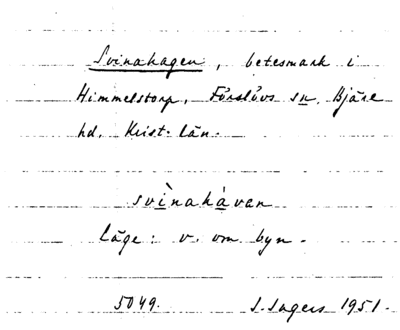 Svinahagen, betesmark i
Himmelstorp, Förslövs sn, Bjäre
hd. Krist. län.
svìnahávan
läge: v. om byn.
5049. S. Ingers 1951.